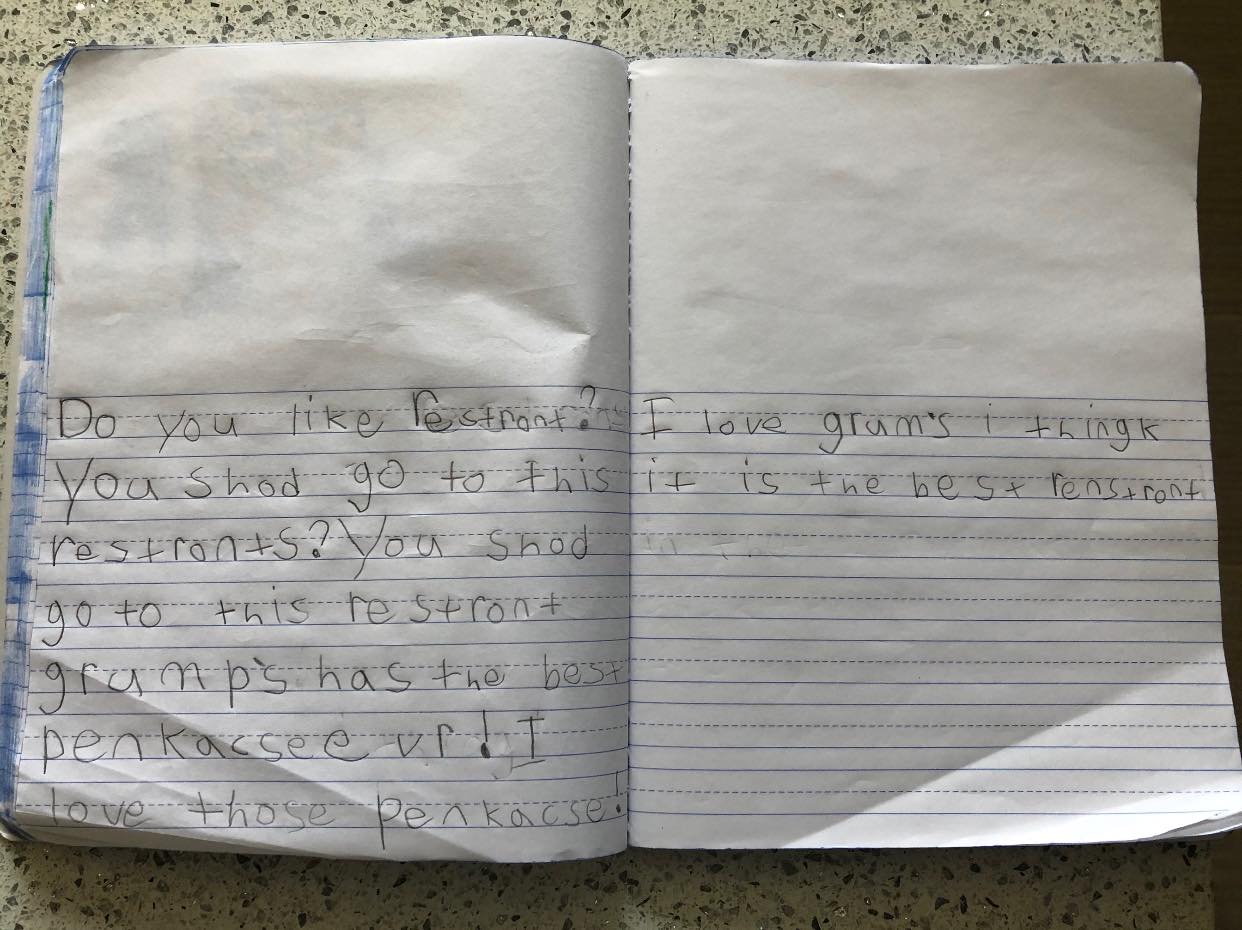 Do you like restront?
You shod go to this
restronts? You shod
go to this restront
grump's has the best
penkacsee vr! I
love those penkacse!
I love grum's i thingk
it is the best renstront